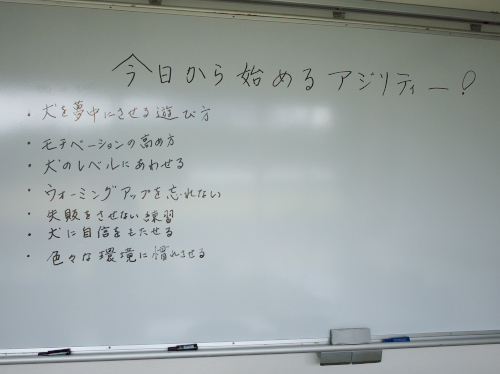 今日から始めるアジリティー!
・犬を夢中にさせる遊び方
・モチベーションの高め方
・犬のレベルにあわせる
・ウォーミングアップを忘れない
・失敗をさせない練習
・犬に自信をもたせる
・色々な環境に慣れさせる